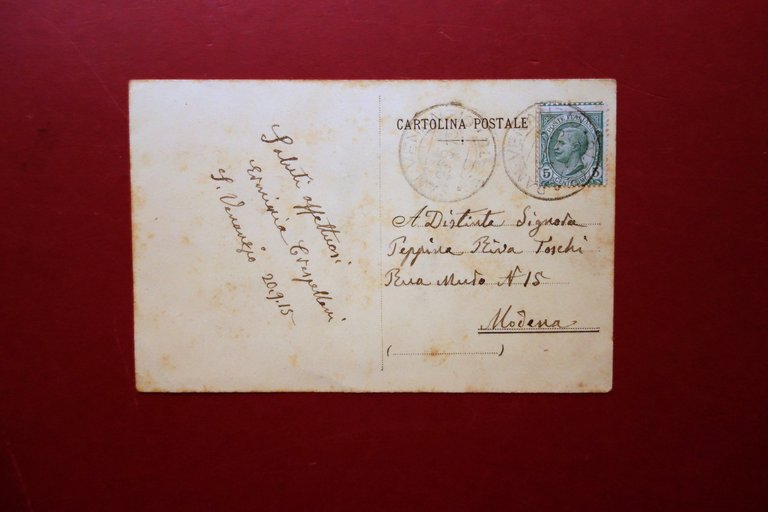 Saluti affettuosi
Erminia Crespellani
S. Venanzio 20.9.15
CARTOLINA POSTALE
A Distinta Signora
Peppina Riva Toschi
Rua Muro N 15
Modena
(
)
5
5